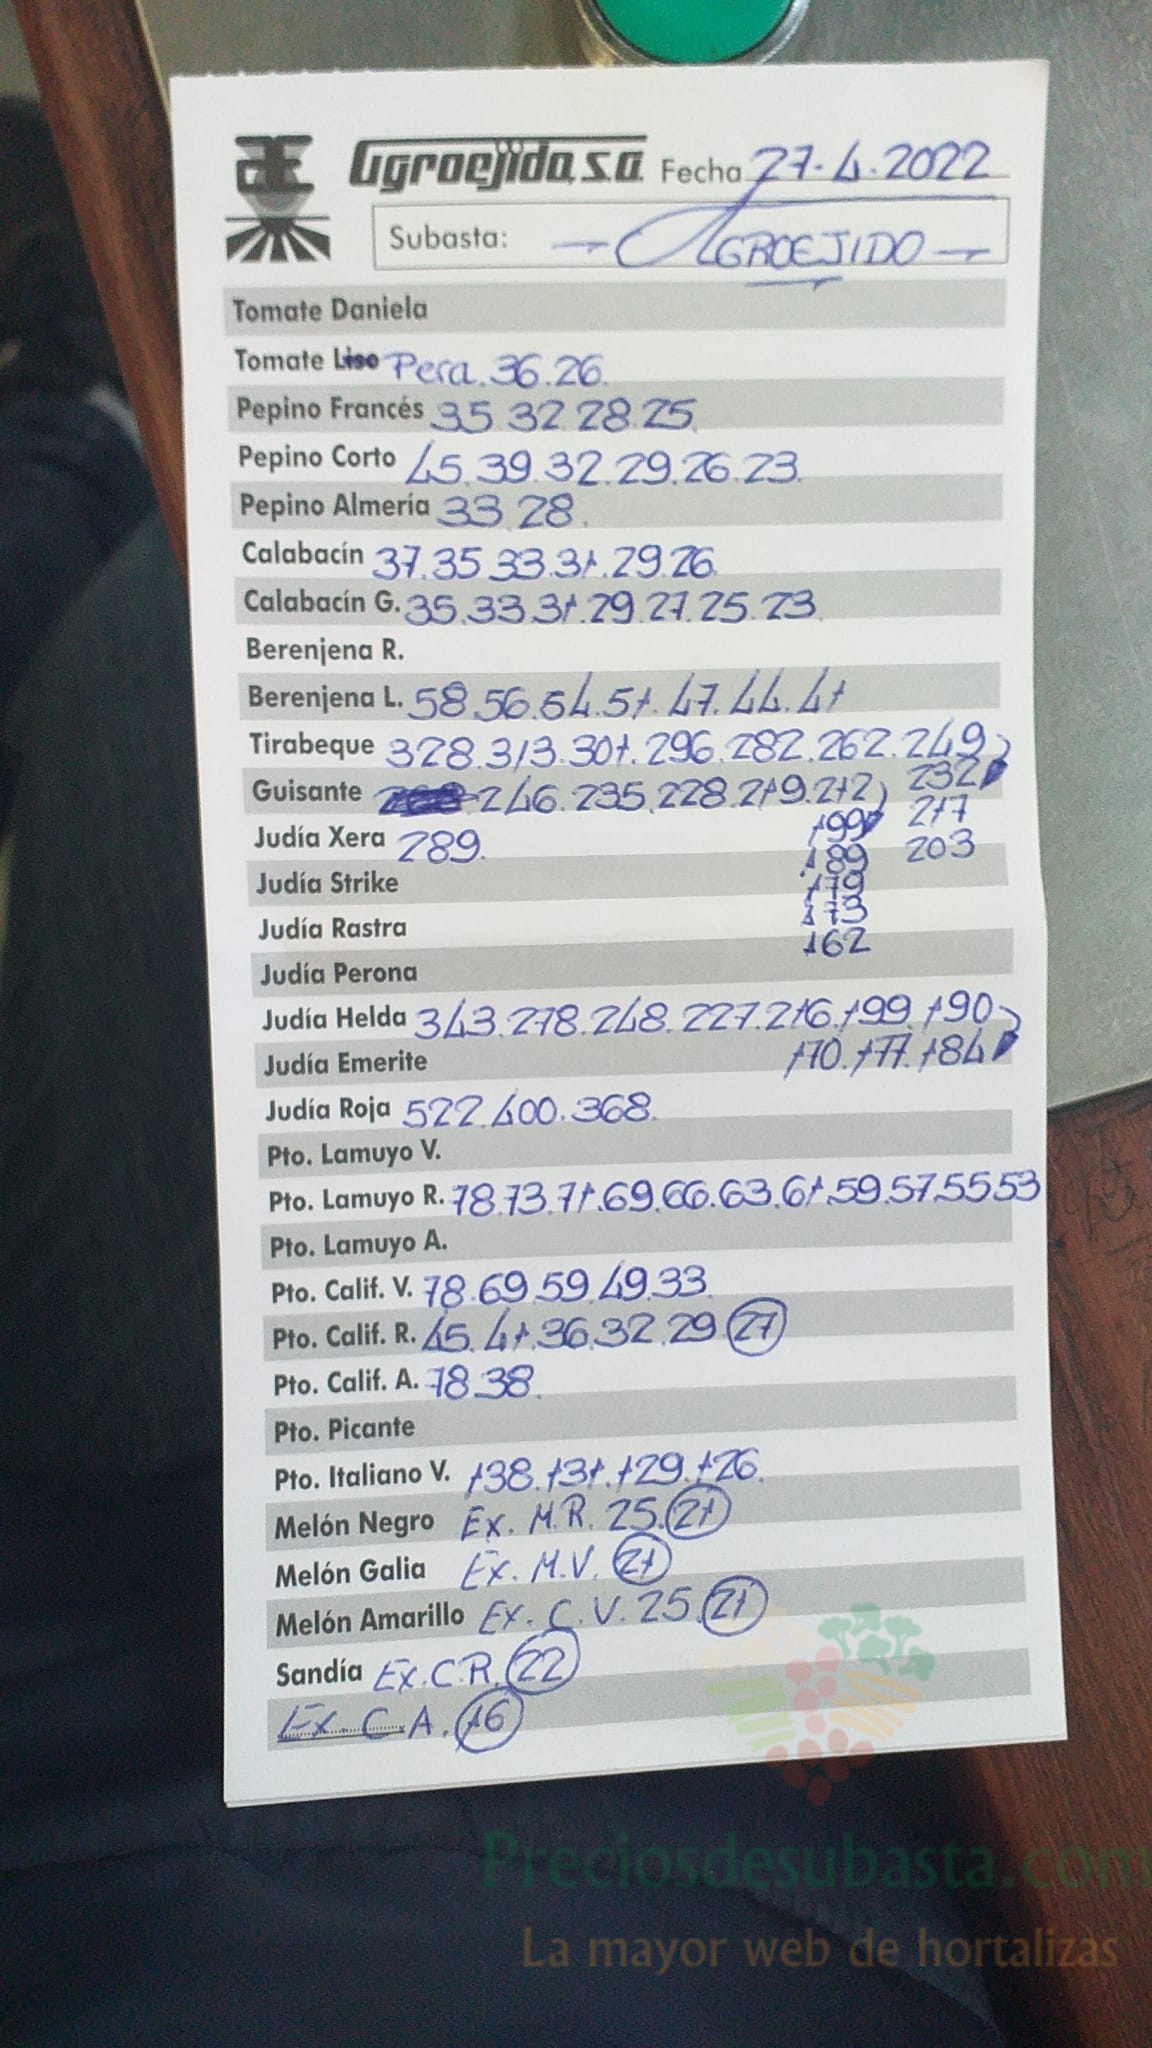 Agroejido, s.a. Fecha 27-4.2022
Subasta: - AGROEJIDO -
Tomate Daniela
Tomate Liso Pera. 36.26.
Pepino Francés 35 32 28.25.
Pepino Corto 45.39.32.29.26.23.
Pepino Almería 33.28.
Calabacín 37.35.33.31.29.26.
Calabacín G. 35.33.31.29.27.25.23.
Berenjena R.
Berenjena L. 58.56.54.51.47.44.41
Tirabeque 328.313.301.296.282.262.249
232
Guisante 246.235.228.219.212
217
199
Judía Xera 289.
203
189
Judía Strike
179
Judía Rastra
173
162
Judía Perona
Judía Helda 343.278.248.227.216.199.190
Judía Emerite 170.177.184
Judía Roja 522.400.368.
Pto. Lamuyo V.
Pto. Lamuyo R. 78.73.71.69.66.63.61.59.57.55 53
Pto. Lamuyo A.
Pto. Calif. V. 78.69.59.49.33.
Pto. Calif. R. 45.41.36.32.29 27
Pto. Calif. A. 78.38.
Pto. Picante
Pto. Italiano V. 138.131.129.126.
Melón Negro Ex. M.R. 25.21
Melón Galia Ex. M.V. 21
Melón Amarillo Ex. C.V. 25.21
Sandía Ex.C.R. 22
Ex.C.A. 16
Preciosdesubasta.com
La mayor web de hortalizas